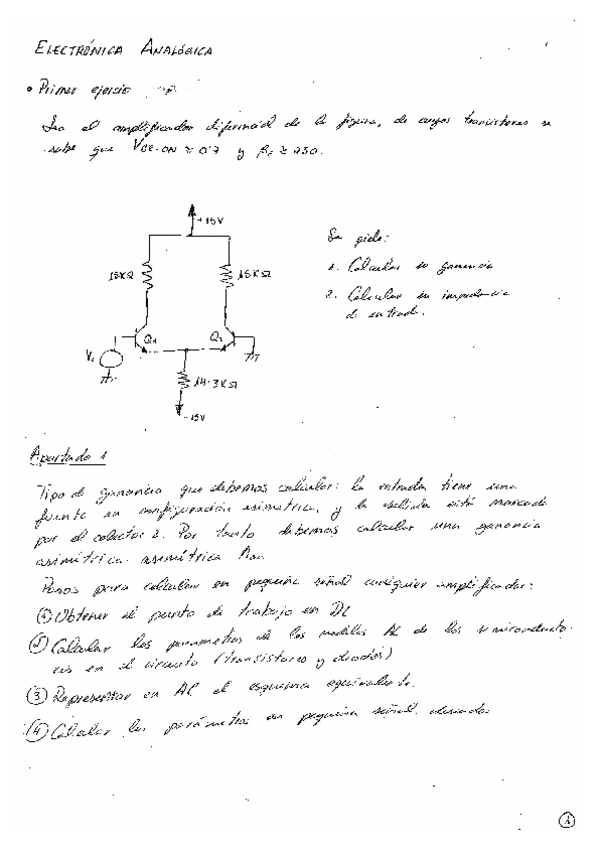 ELECTRÓNICA ANALÓGICA
• Primer ejercicio
Sea el amplificador diferencial de la figura, de cuyos transistores se
sabe que VBE-ON ≈ 0'7 y
+15V
Se pide:
15KΩ
15KΩ
1. Calcular su ganancia
2. Calcular su impedancia
de entrada.
Q1
Q2
14.3KΩ
-15V
Apartado 1
Tipo de ganancia que debemos calcular: la entrada tiene una
fuente en configuración asimétrica, y la salida está marcada
por el colector 2. Por tanto debemos calcular una ganancia
asimétrica-asimétrica
Pasos para calcular en pequeña señal cualquier amplificador:
① Obtener el punto de trabajo en DC
② Calcular los parámetros de los modelos AC de los semiconducto-
res en el circuito (transistores y diodos)
③ Representar en AC el esquema equivalente.
④ Calcular los parámetros en pequeña señal